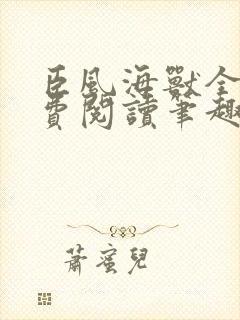 臣風海獸全
費閱讀筆趣
蕭蜜兒